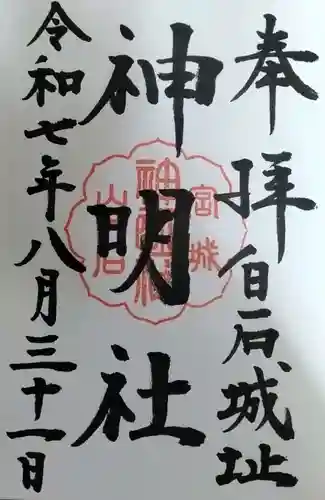 奉拝 白石城址
神明社
令和七年八月三十一日
宮城
神明社
白石